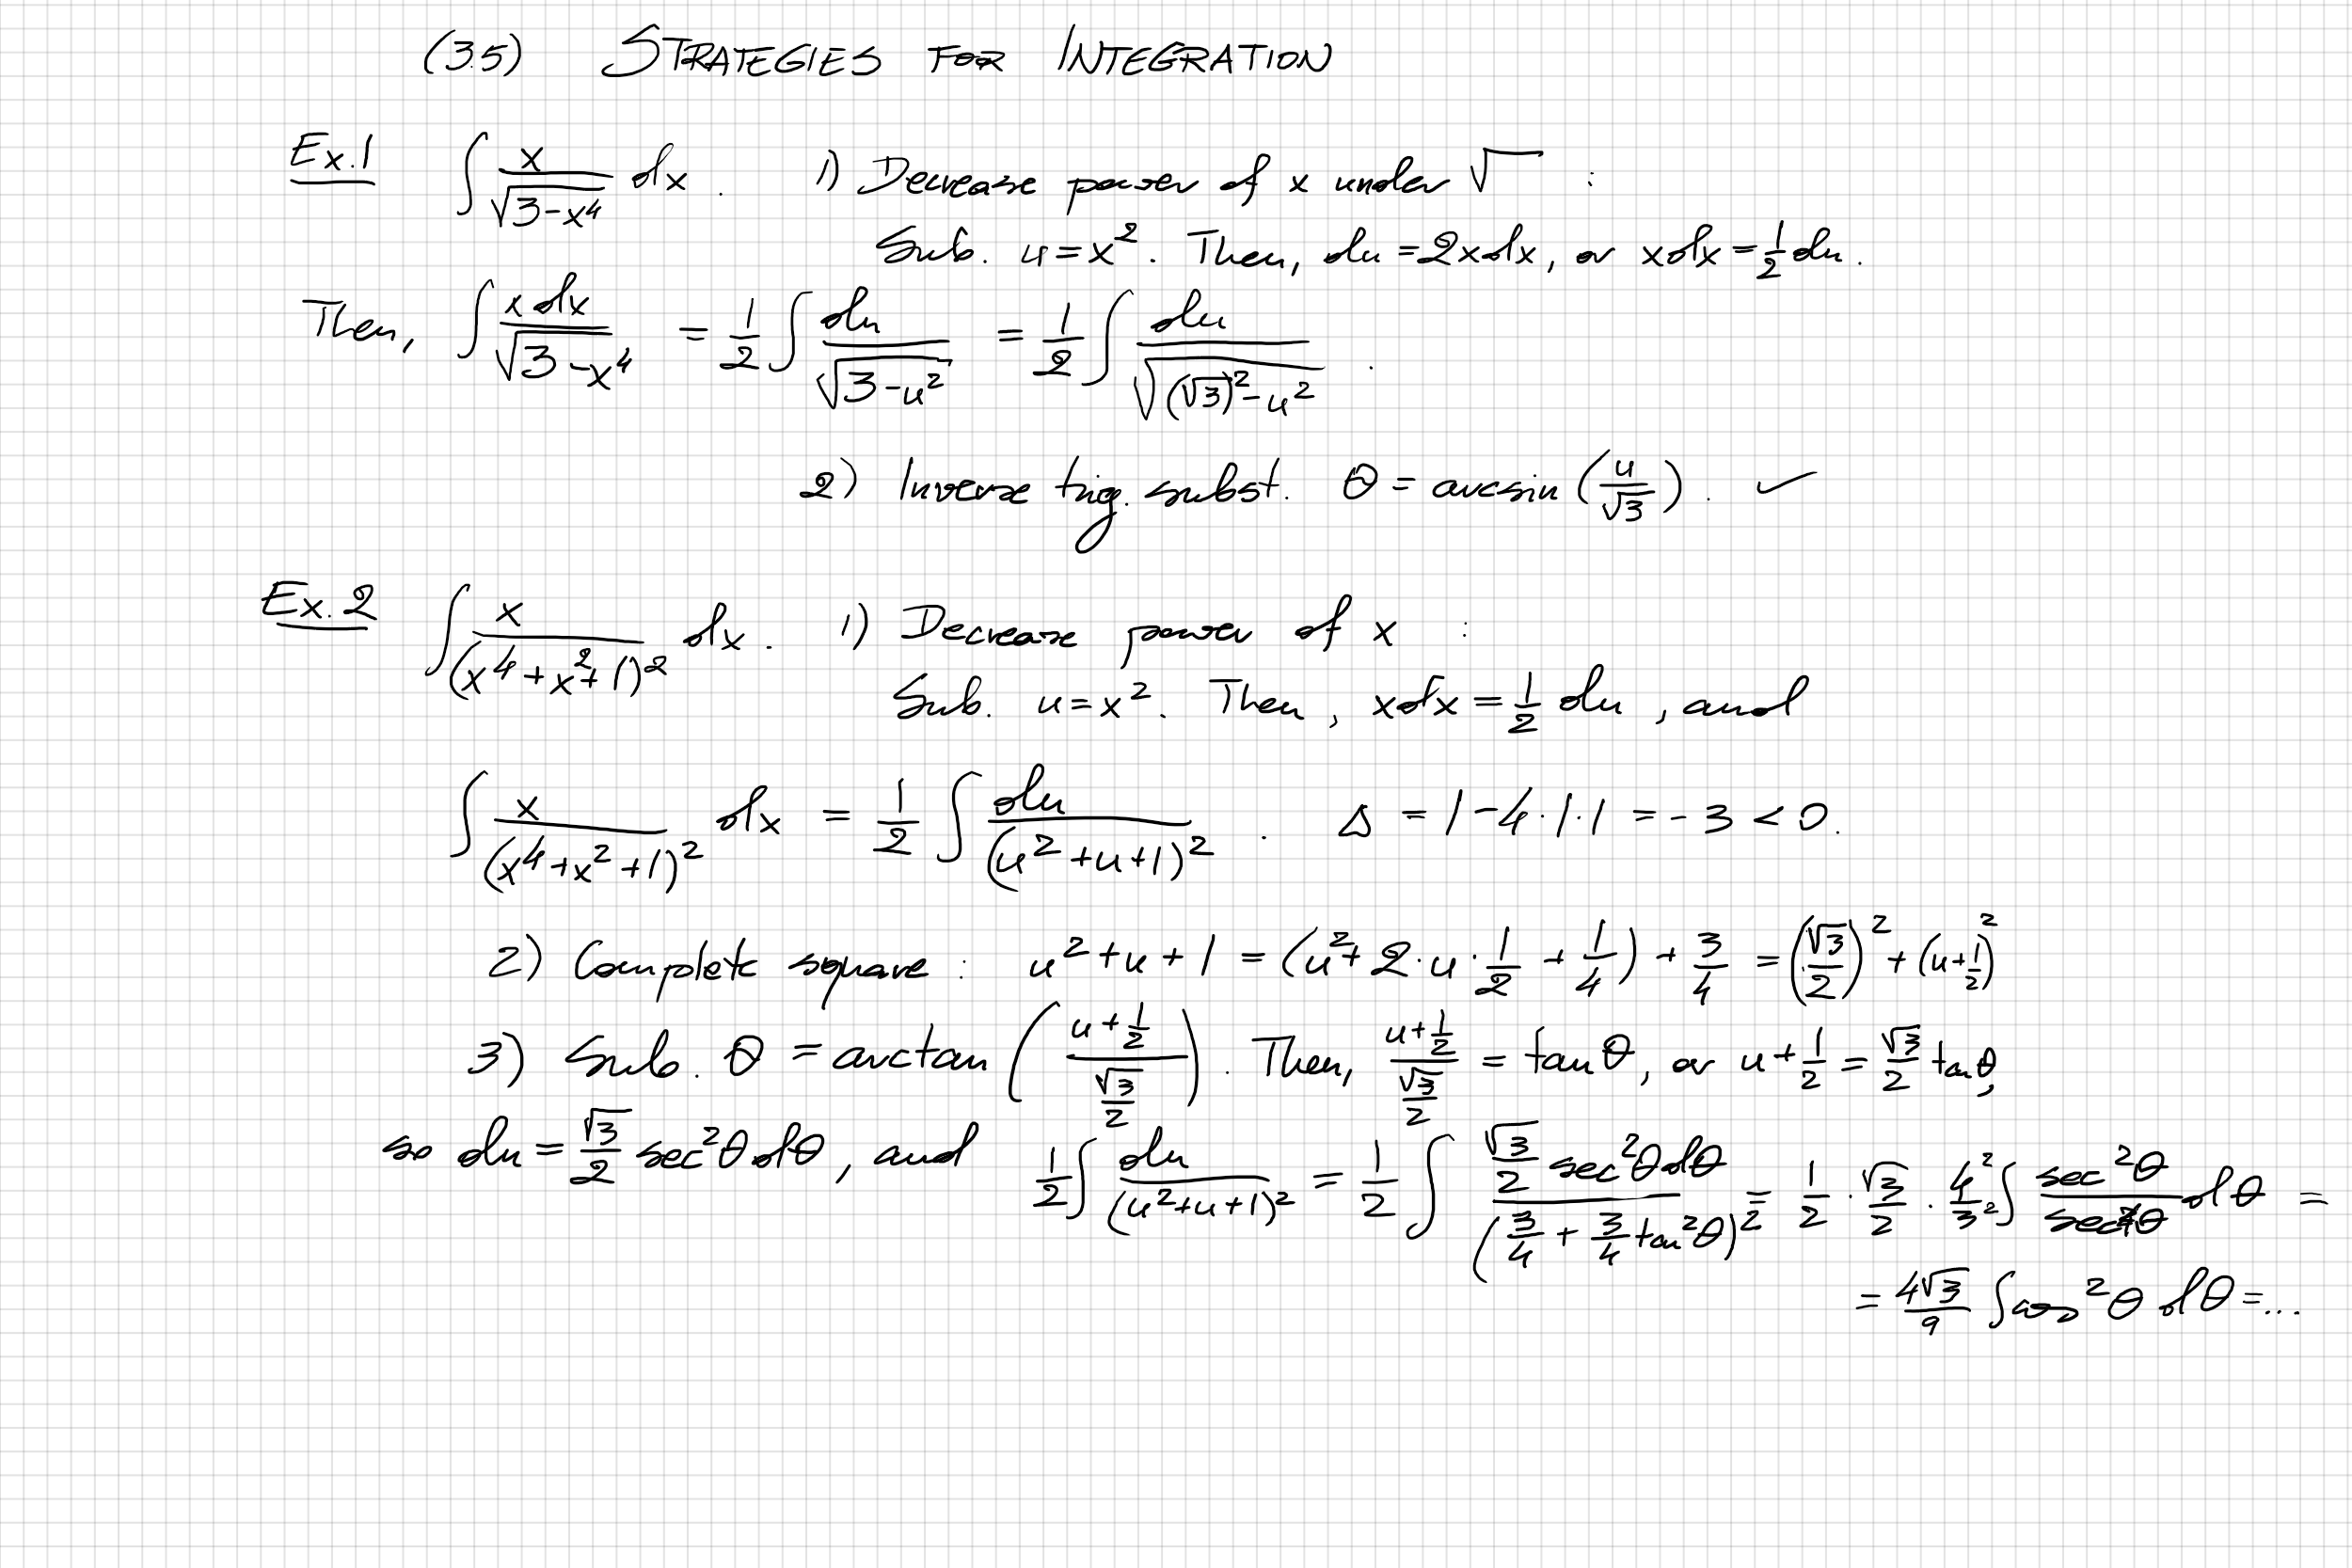 (3.5) STRATEGIES FOR INTEGRATION
Ex.1 ∫ x/√(3-x⁴) dx. 1) Decrease power of x under √ :
Sub. u=x². Then, du=2xdx, or xdx=½du.
Then, ∫ xdx/√(3-x⁴) = ½ ∫ du/√(3-u²) = ½ ∫ du/√((√3)²-u²).
2) Inverse trig. subst. θ = arcsin (u/√3). ✓
Ex.2 ∫ x/(x⁴+x²+1)² dx. 1) Decrease power of x :
Sub. u=x². Then, xdx=½ du, and
∫ x/(x⁴+x²+1)² dx = ½ ∫ du/(u²+u+1)². Δ = 1-4·1·1 = -3 < 0.
2) Complete square: u²+u+1 = (u²+2·u·½+¼)+¾ = (√3/2)²+(u+½)²
3) Sub. θ = arctan ((u+½)/(√3/2)). Then, (u+½)/(√3/2) = tanθ, or u+½ = √3/2 tanθ,
so du = √3/2 sec²θdθ, and ½∫ du/(u²+u+1)² = ½ ∫ (√3/2 sec²θdθ)/(¾+¾tan²θ)² = ½·√3/2·4²/3² ∫ sec²θ/sec⁴θ dθ =
= 4√3/9 ∫cos²θ dθ = ...